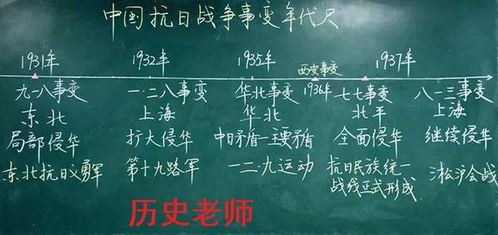 中国抗日战争事变年代尺
1931年 1932年 1935年 西安事变 1936年 1937年
九一八事变 一·二八事变 华北事变 七七事变 八一三事变
东北 上海 华北 北平 上海
局部侵华 扩大侵华 中日矛盾-主要矛盾 全面侵华 继续侵华
东北抗日义勇军 第十九路军 一二·九运动 抗日民族统一战线正式形成 淞沪会战
历史老师